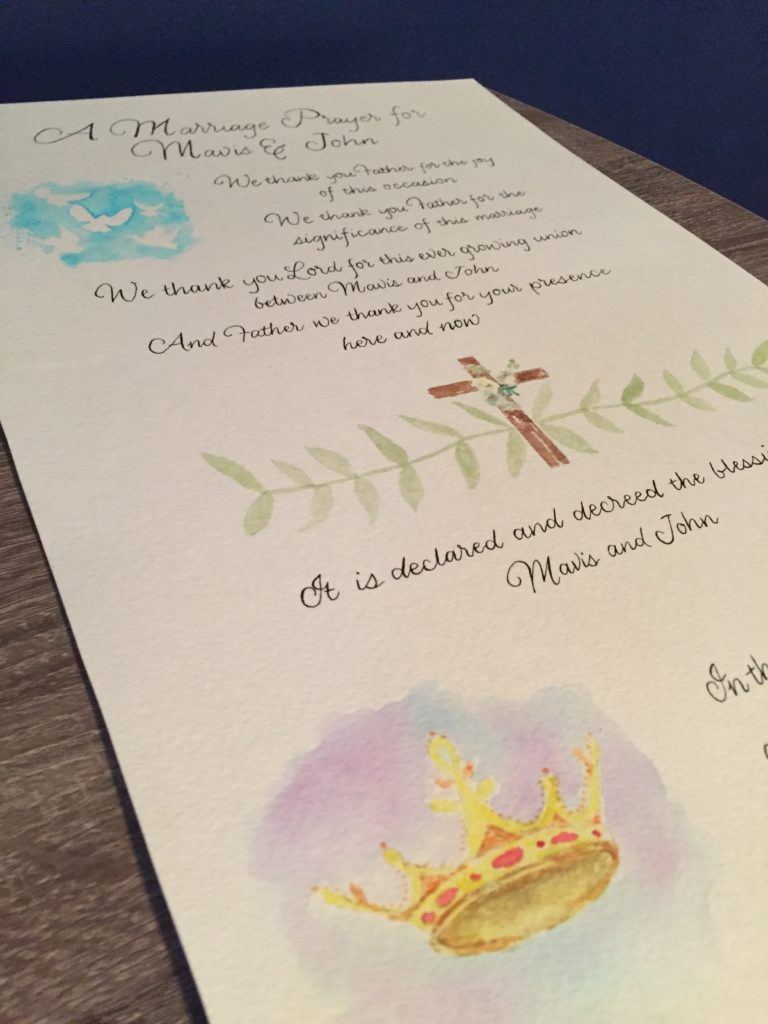 A Marriage Prayer for
Mavis & John
We thank you Father for the joy
of this occasion
We thank you Father for the
significance of this marriage
We thank you Lord for this ever growing union
between Mavis and John
And Father we thank you for your presence
here and now
It is declared and decreed the blessi
Mavis and John
In th